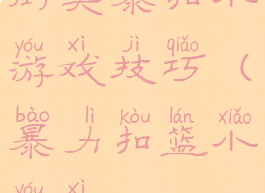 街 头 暴 扣 小
yóu xì jì qiǎo
游 戏 技 巧 （
bào lì kòu lán xiǎo
暴 力 扣 篮 小
yóu xì